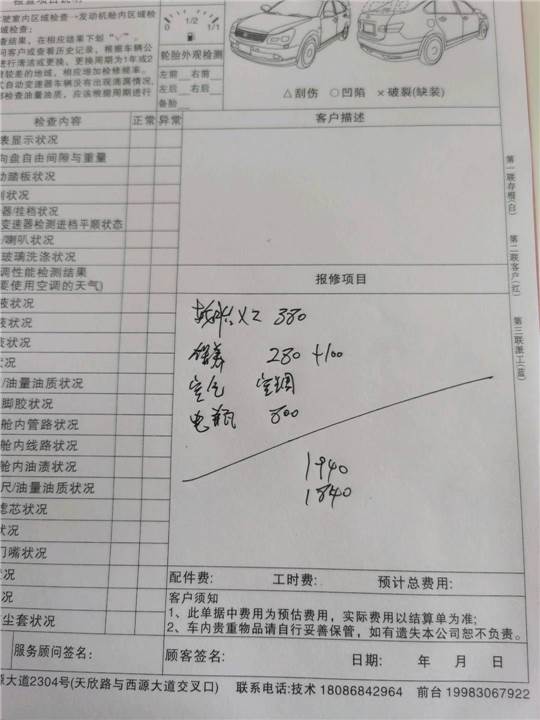 检查项目说明
驶室内区域检查→发动机舱内区域检
域检查;
查结果,在相应结果下划“√”。
问客户或查看历史记录,根据车辆公
进行清洁或更换、更换周期为1年或2
较差的地域,相应增加检修频率。
式自动变速器车辆没有出现滴漏情况,
部检查油量油质,应该根据周期进行
0 1/2 1/1
轮胎外观检测
左前 右前
左后 右后
备胎
△刮伤 ○凹陷 ×破裂(缺装)
检查内容 正常 异常 客户描述
表显示状况
向盘自由间隙与重量
动踏板状况
刂状况
器/挂档状况
变速器检测进档平顺状态
/喇叭状况
玻璃洗涤状况
调性能检测结果
要使用空调的天气)
液状况
液状况
液状况
状况
/油量油质状况
脚胶状况
舱内管路状况
舱内线路状况
舱内油渍状况
尺/油量油质状况
滤芯状况
状况
门嘴状况
况
况
尘套状况
报修项目
X2 380
保养 280 +100
空气 空调
电瓶 800
1940
1840
配件费: 工时费: 预计总费用:
客户须知
1、此单据中费用为预估费用,实际费用以结算单为准;
2、车内贵重物品请自行妥善保管,如有遗失本公司恕不负责。
服务顾问签名: 顾客签名: 日期: 年 月 日
源大道2304号(天欣路与西源大道交叉口) 联系电话:技术 18086842964 前台 19983067922
第一联存根(白)
第二联客户(红)
第三联派工(蓝)